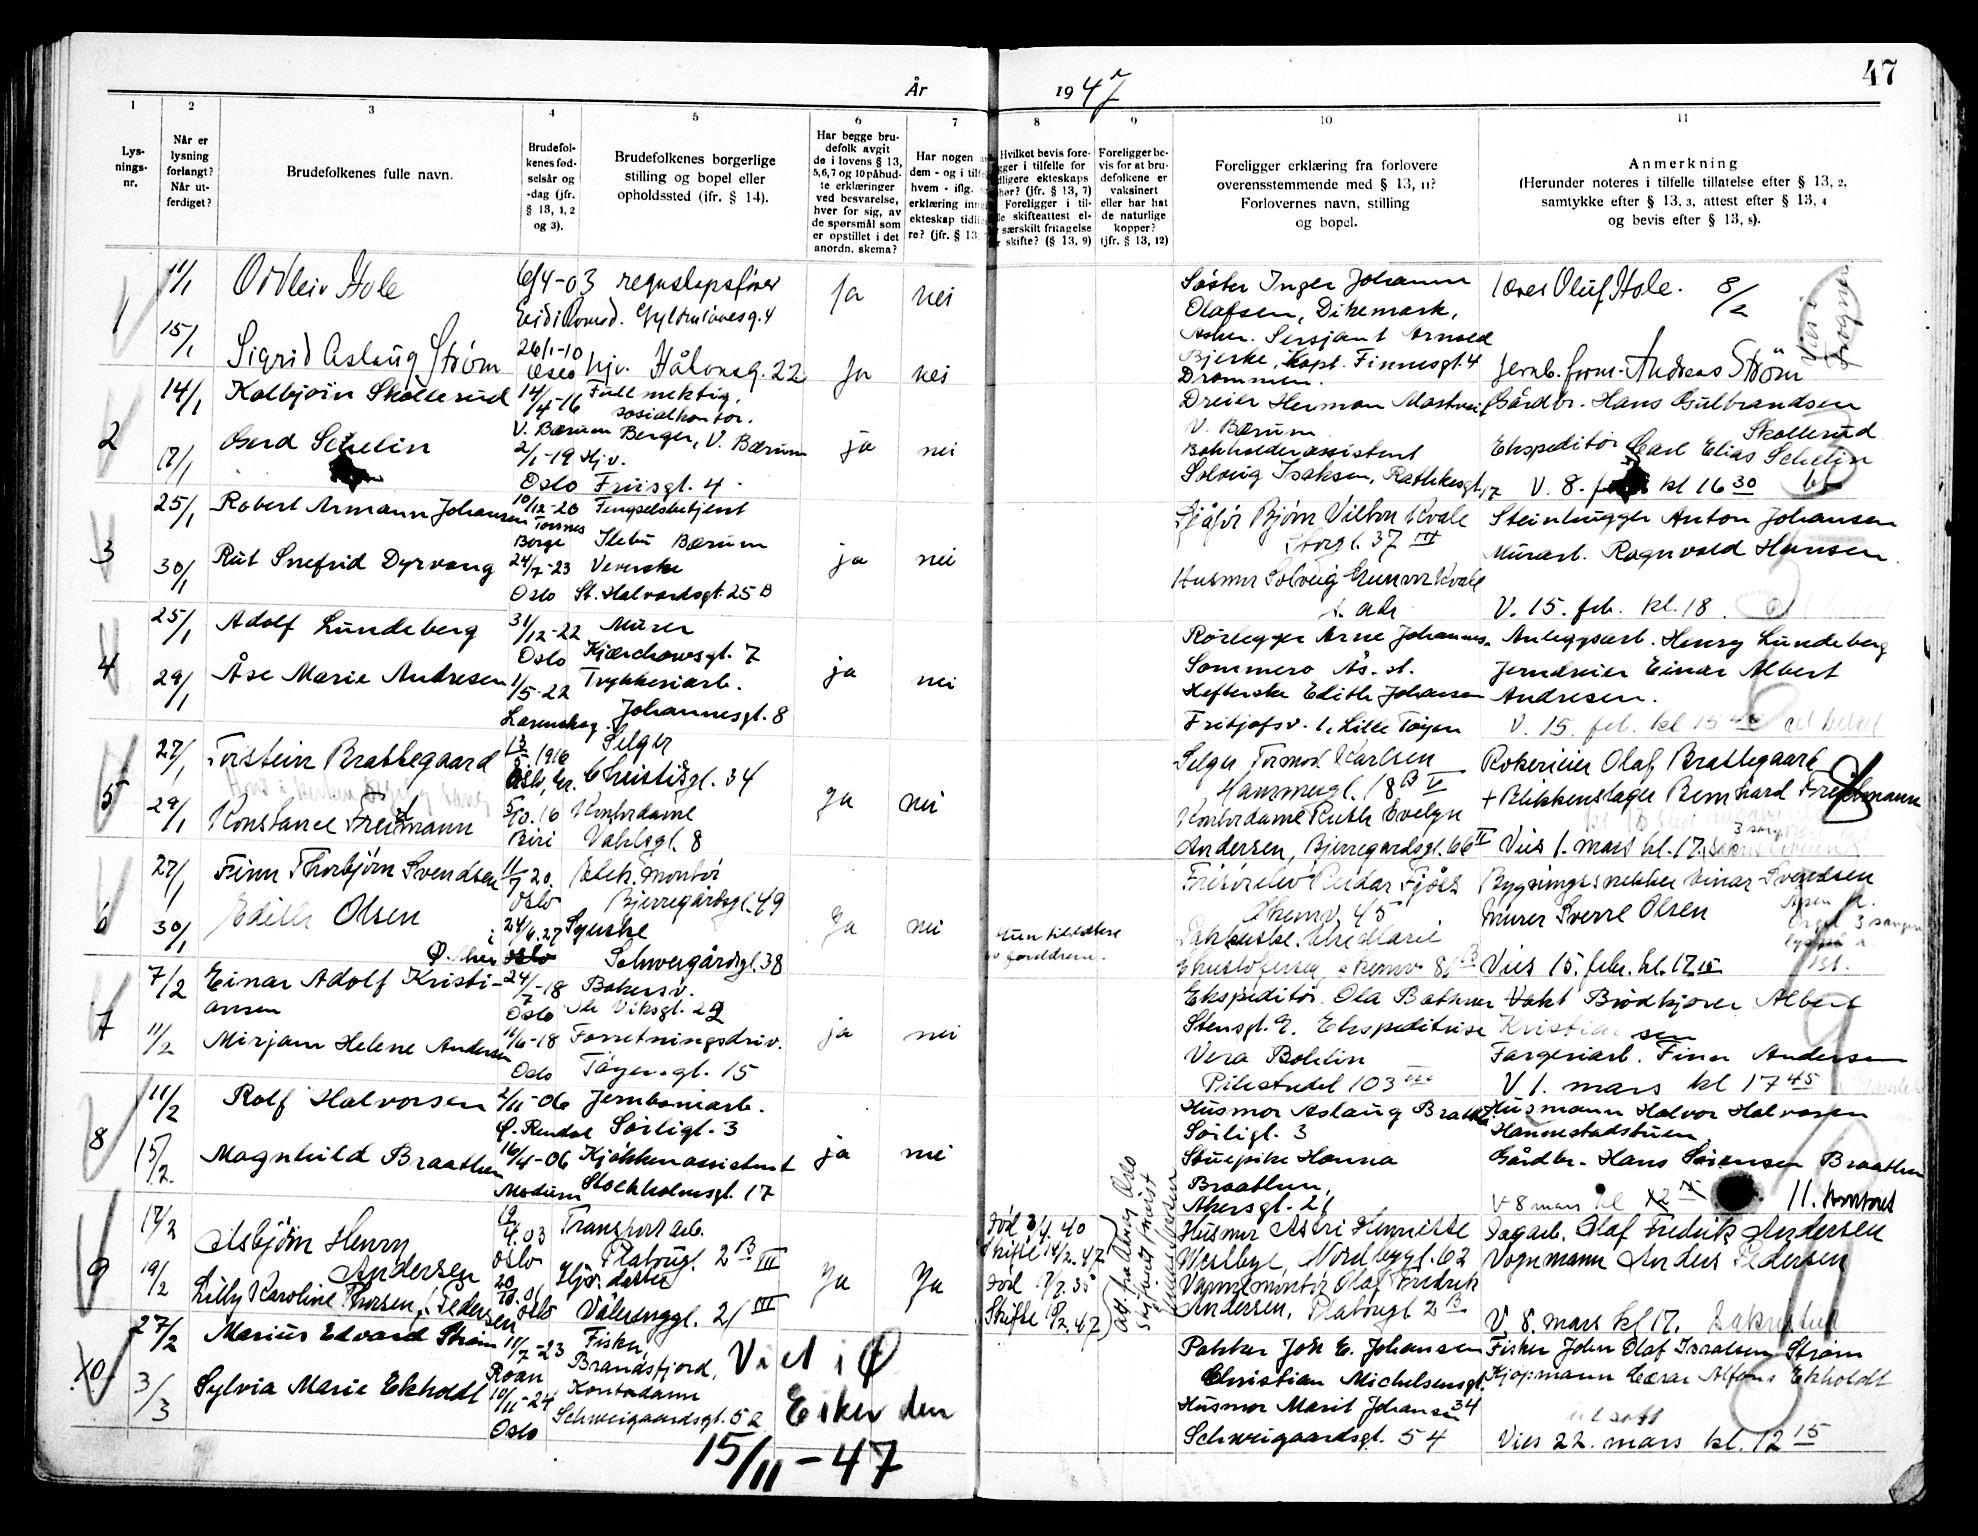 47
År 1947
1
2
3
4
5
6
7
8
9
10
11
Lys-
nings-
nr.
Når er
lysning
forlangt?
Når ut-
ferdiget?
Brudefolkenes fulle navn.
Brudefol-
kenes fød-
selsår og
-dag (jfr.
§ 13, 1, 2
og 3).
Brudefolkenes borgerlige
stilling og bopel eller
opholdssted (jfr. § 14).
Har begge bru-
defolk avgit
de i lovens § 13,
5,6,7 og 10 påbud-
te erklæringer
ved besvarelse,
hver for sig, av
de spørsmål som
er opstillet i det
anordn. skema?
Har nogen
dem - og i tilf
hvem - iflg.
erklæring inng
ekteskap tidli
re? (jfr. § 13
Hvilket bevis fore-
ger i tilfelle for
dligere ekteskaps
hør? (jfr. § 13, 7)
Foreligger i til-
le skifteattest el-
særskilt fritagelse
skifte? (§ 13, 9)
Foreligger be-
vis for at bru-
defolkene er
vaksinert
eller har hat
de naturlige
kopper?
(jfr. § 13, 12)
Foreligger erklæring fra forlovere
overensstemmende med § 13, 11?
Forlovernes navn, stilling
og bopel.
Anmerkning
(Herunder noteres i tilfelle tillatelse efter § 13, 2,
samtykke efter § 13, 3, attest efter § 13, 4
og bevis efter § 13, 8).
1
11/1
Oddleiv Hole
6/4-03
regnskapsfører
ja
nei
Søster Inger Johanne
Olafsen, Dikemark,
Asker. Sersjant Arnold
Bjerke, Kapt. Finnesgt. 4
Drammen.
Oluf Hole. 8/2
15/1
Sigrid Aslaug Strøm
26/1-10
Oslo
hjv. Håkonsg. 22
ja
nei
Jernb.form. Andreas Strøm
2
14/1
Kolbjørn Skollerud
14/4-16
V. Bærum
Fullmektig,
sosialkontor.
Berger, V. Bærum
ja
nei
Dreier Herman Mostvei
V. Bærum
Gårdbr. Hans Gulbrandsen
Skollerud
17/1
Gerd Schelin
2/1-19
Oslo
Hjv.
Friisgt. 4
Bokholderassistent
Solveig Isaksen, Rathkesgt. 17
Ekspeditør Carl Elias Schelin
V. 8. kl 16 30
3
25/1
Robert Armann Johansen
10/12-20
Torsnes
Borge
Fengselsbetjent
Ilebu Bærum
ja
nei
Sjåfør Bjørn Vilton Kvale
Storgt. 37 III
Steinhugger Anton Johansen
30/1
Rut Snefrid Dyrvang
24/7-23
Oslo
Veverske
St. Halvardsgt. 25 B
Husmor Solveig Gunvor Kvale
s. adr
Murarb. Ragnvald Hansen
V. 15. feb. kl. 18.
4
25/1
Adolf Lundeberg
31/12-22
Oslo
Murer
Kjærchowsgt. 7
ja
nei
Rørlegger Arne Johannes
Sommero Ås. st.
Anleggsarb. Henry Lundeberg
29/1
Åse Marie Andresen
1/5-22
Lørenskog
Trykkeriarb.
Johannesgt. 8
Hefterske Edith Johansen
Fritjofsv. 1, Lille Tøyen
Jerndreier Einar Albert
Andresen.
V. 15. feb. kl 15
5
27/1
Torstein Brattegaard
13/5 1916
Oslo, Gr.
Selger
Christiesgt. 34
ja
nei
Selger Tormod Karlsen
Hammergt. 18 B IV
Røkerieier Olaf Brattegaard
29/1
Konstance Freitmann
5/10.16
Biri
Kontordame
Vahlsgt. 8
Kontordame Ruth Evelyn
Andersen, Bjerregårdsgt. 66 II
+ Blikkenslager Bernhard Freitmann
Vies 1. mars kl. 17.
6
27/1
Finn Thorbjørn Svendsen
11/7 20.
Oslo
Elek. montør
Bjerregårdsgt. 49
ja
nei
Frisørelev Reidar Fjøss
Økernv. 45
Byggingssnekker Einar Svendsen
30/1
Edith Olsen
24/6.27
Oslo
Syerske
Schweigårdsgt. 38
foreldrene.
Murer Sverre Olsen
Vies 15. febr. kl. 17 15
7
7/2
Einar Adolf Kristi-
ansen
24/7-18
Oslo
Bakersv.
Ole Viksgt. 22
ja
nei
Ekspeditør Ola Bothner
Stensgt. 9. Ekspeditrise
Vakt Brødkjører Albert
Kristiansen
11/2
Mirjam Helene Andersen
11/6-18
Oslo
Forretningsdriv.
Tøyengt. 15
Vera Bohlin
Pilestredet 103 III
Fargeriarb. Finn Andersen
V 1. mars kl 17 45
8
11/2
Rolf Halvorsen
2/11-06
Ø. Rendal
Jernbaniarb.
Sørligt. 3
ja
nei
Husmor Aslaug Braathen
Sørligt. 3
Husmann Halvor Halvorsen
Hannestadstuen
15/2.
Magnhild Braathen
16/4-06
Modum
Kjøkkenassistent
Stockholmsgt. 17
Stuepike Hanna
Braathen,
Akersgt. 21
Gårdbr. Hans Sørensen Braathen
v 8 mars kl 11. kontoret
9
17/2
Asbjørn Henry
Andersen
19/4.03
Oslo
Transportarb.
Platougt. 2 B III
ja
ja
død 3/4. 40
Skifte 14/2. 47
Husmor Astri Henriette
Westbye, Nordbygt. 62
Dagarb. Olaf Fredrik Andersen
19/2
Lilly Karoline Thorsen f. Pedersen
20/10.01
Oslo
Hjv. datter
Vålerenggt. 21 III
død 7/7. 35
Skifte 19/2. 47
Varmemontør Olaf Fredrik
Andersen, Platougt 2 B
Vognmann Anders Pedersen
V 8. mars kl 17.
10
27/2
Marius Edvard Strøm
11/7-23
Roan
Fisker,
Brandsfjord,
Viet i Ø
Eiker den
15/11-47
Pakker Joh E. Johansen
Christian Michelsensgt. 34
Fisker John Olaf Israelsen Strøm
3/3
Sylvia Marie Ekholdt
10/11-24
Oslo
Kontordame
Schweigaardsgt. 52
Husmor Marit Johansen
Schweigaardsgt. 54
Kjøpmann Cæsar Alfons Ekholdt
utsatt
Vies 22. mars kl. 12 15